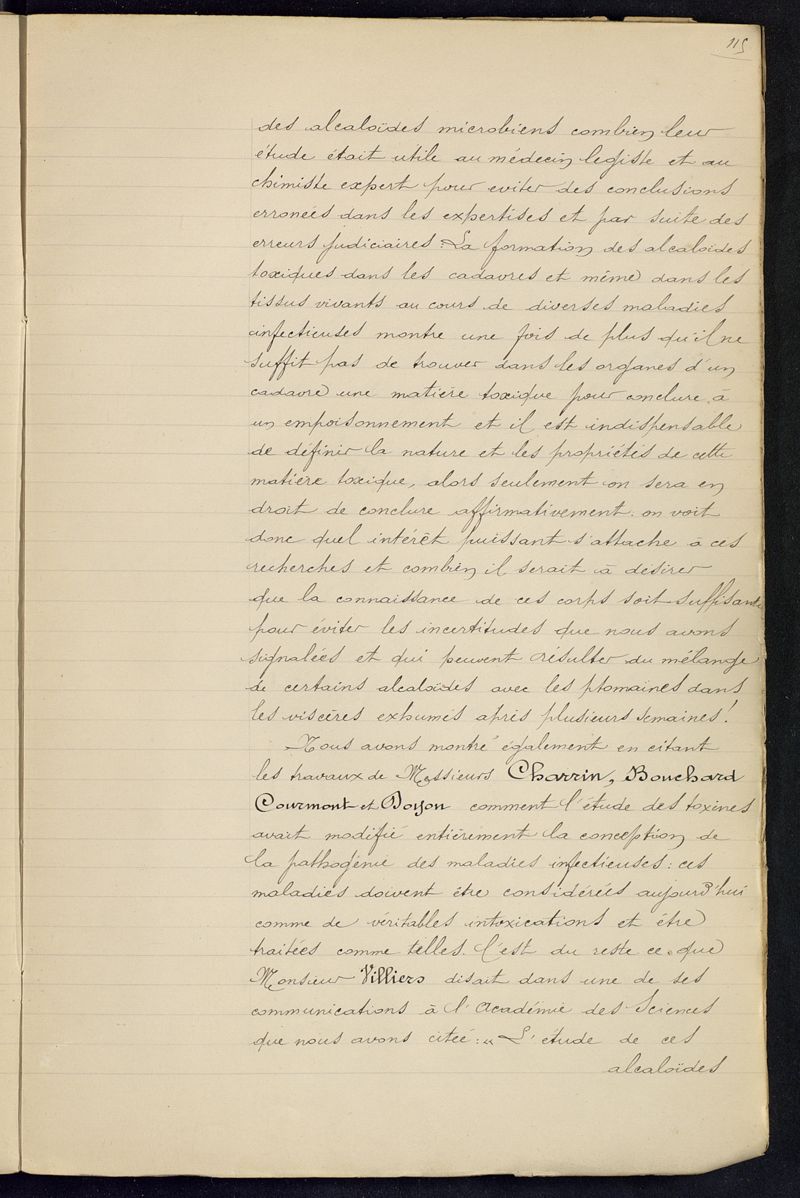 115
des alcaloïdes microbiens combien leur
étude était utile au médecin legiste et au
chimiste expert pour eviter des conclusions
erronées dans les expertises et par suite des
erreurs judiciaires. La formation des alcaloïdes
toxiques dans les cadavres et même dans les
tissus vivants au cours de diverses maladies
infectieuses montre une fois de plus qu'il ne
suffit pas de trouver dans les organes d'un
cadavre une matière toxique pour conclure à
un empoisonnement et il est indispensable
de définir la nature et les propriétés de cette
matière toxique, alors seulement on sera en
droit de conclure affirmativement. on voit
donc quel intérêt puissant s'attache à ces
recherches et combien il serait à désirer
que la connaissance de ces corps soit suffisante
pour éviter les incertitudes que nous avons
signalées et qui peuvent résulter du mélange
de certains alcaloïdes avec les ptomaines dans
les viscères exhumés après plusieurs semaines!
Nous avons montré également en citant
les travaux de Messieurs Charrin, Bouchard
Courmont et Doyon comment l'étude des toxines
avait modifié entièrement la conception de
la pathogénie des maladies infectieuses: ces
maladies doivent être considérées aujourd'hui
comme de véritables intoxications et être
traitées comme telles. C'est du reste ce que
Monsieur Villiers disait dans une de ses
communications à l'Académie des Sciences
que nous avons citée: « L'étude de ces
alcaloïdes